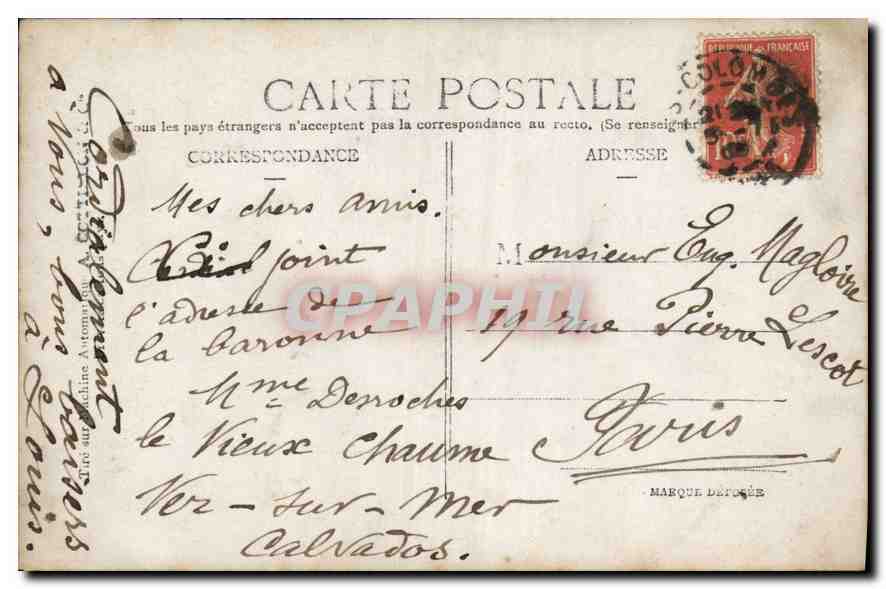 CARTE POSTALE
Tous les pays étrangers n'acceptent pas la correspondance au recto. (Se renseigner
CORRESPONDANCE
ADRESSE
RÉPUBLIQUE FRANÇAISE
COLOMB
Mes chers amis.
joint
l'adresse de
la baronne
Mme Desroches
le Vieux Chaume
Ver-sur-Mer
Calvados.
Monsieur Eug. Magloire
19 rue Pierre Lescot
Paris
MARQUE DÉPOSÉE
CPAPHIL
Cordialement
à vous, bons baisers
à Louis.
Tiré sur Machine Automatique